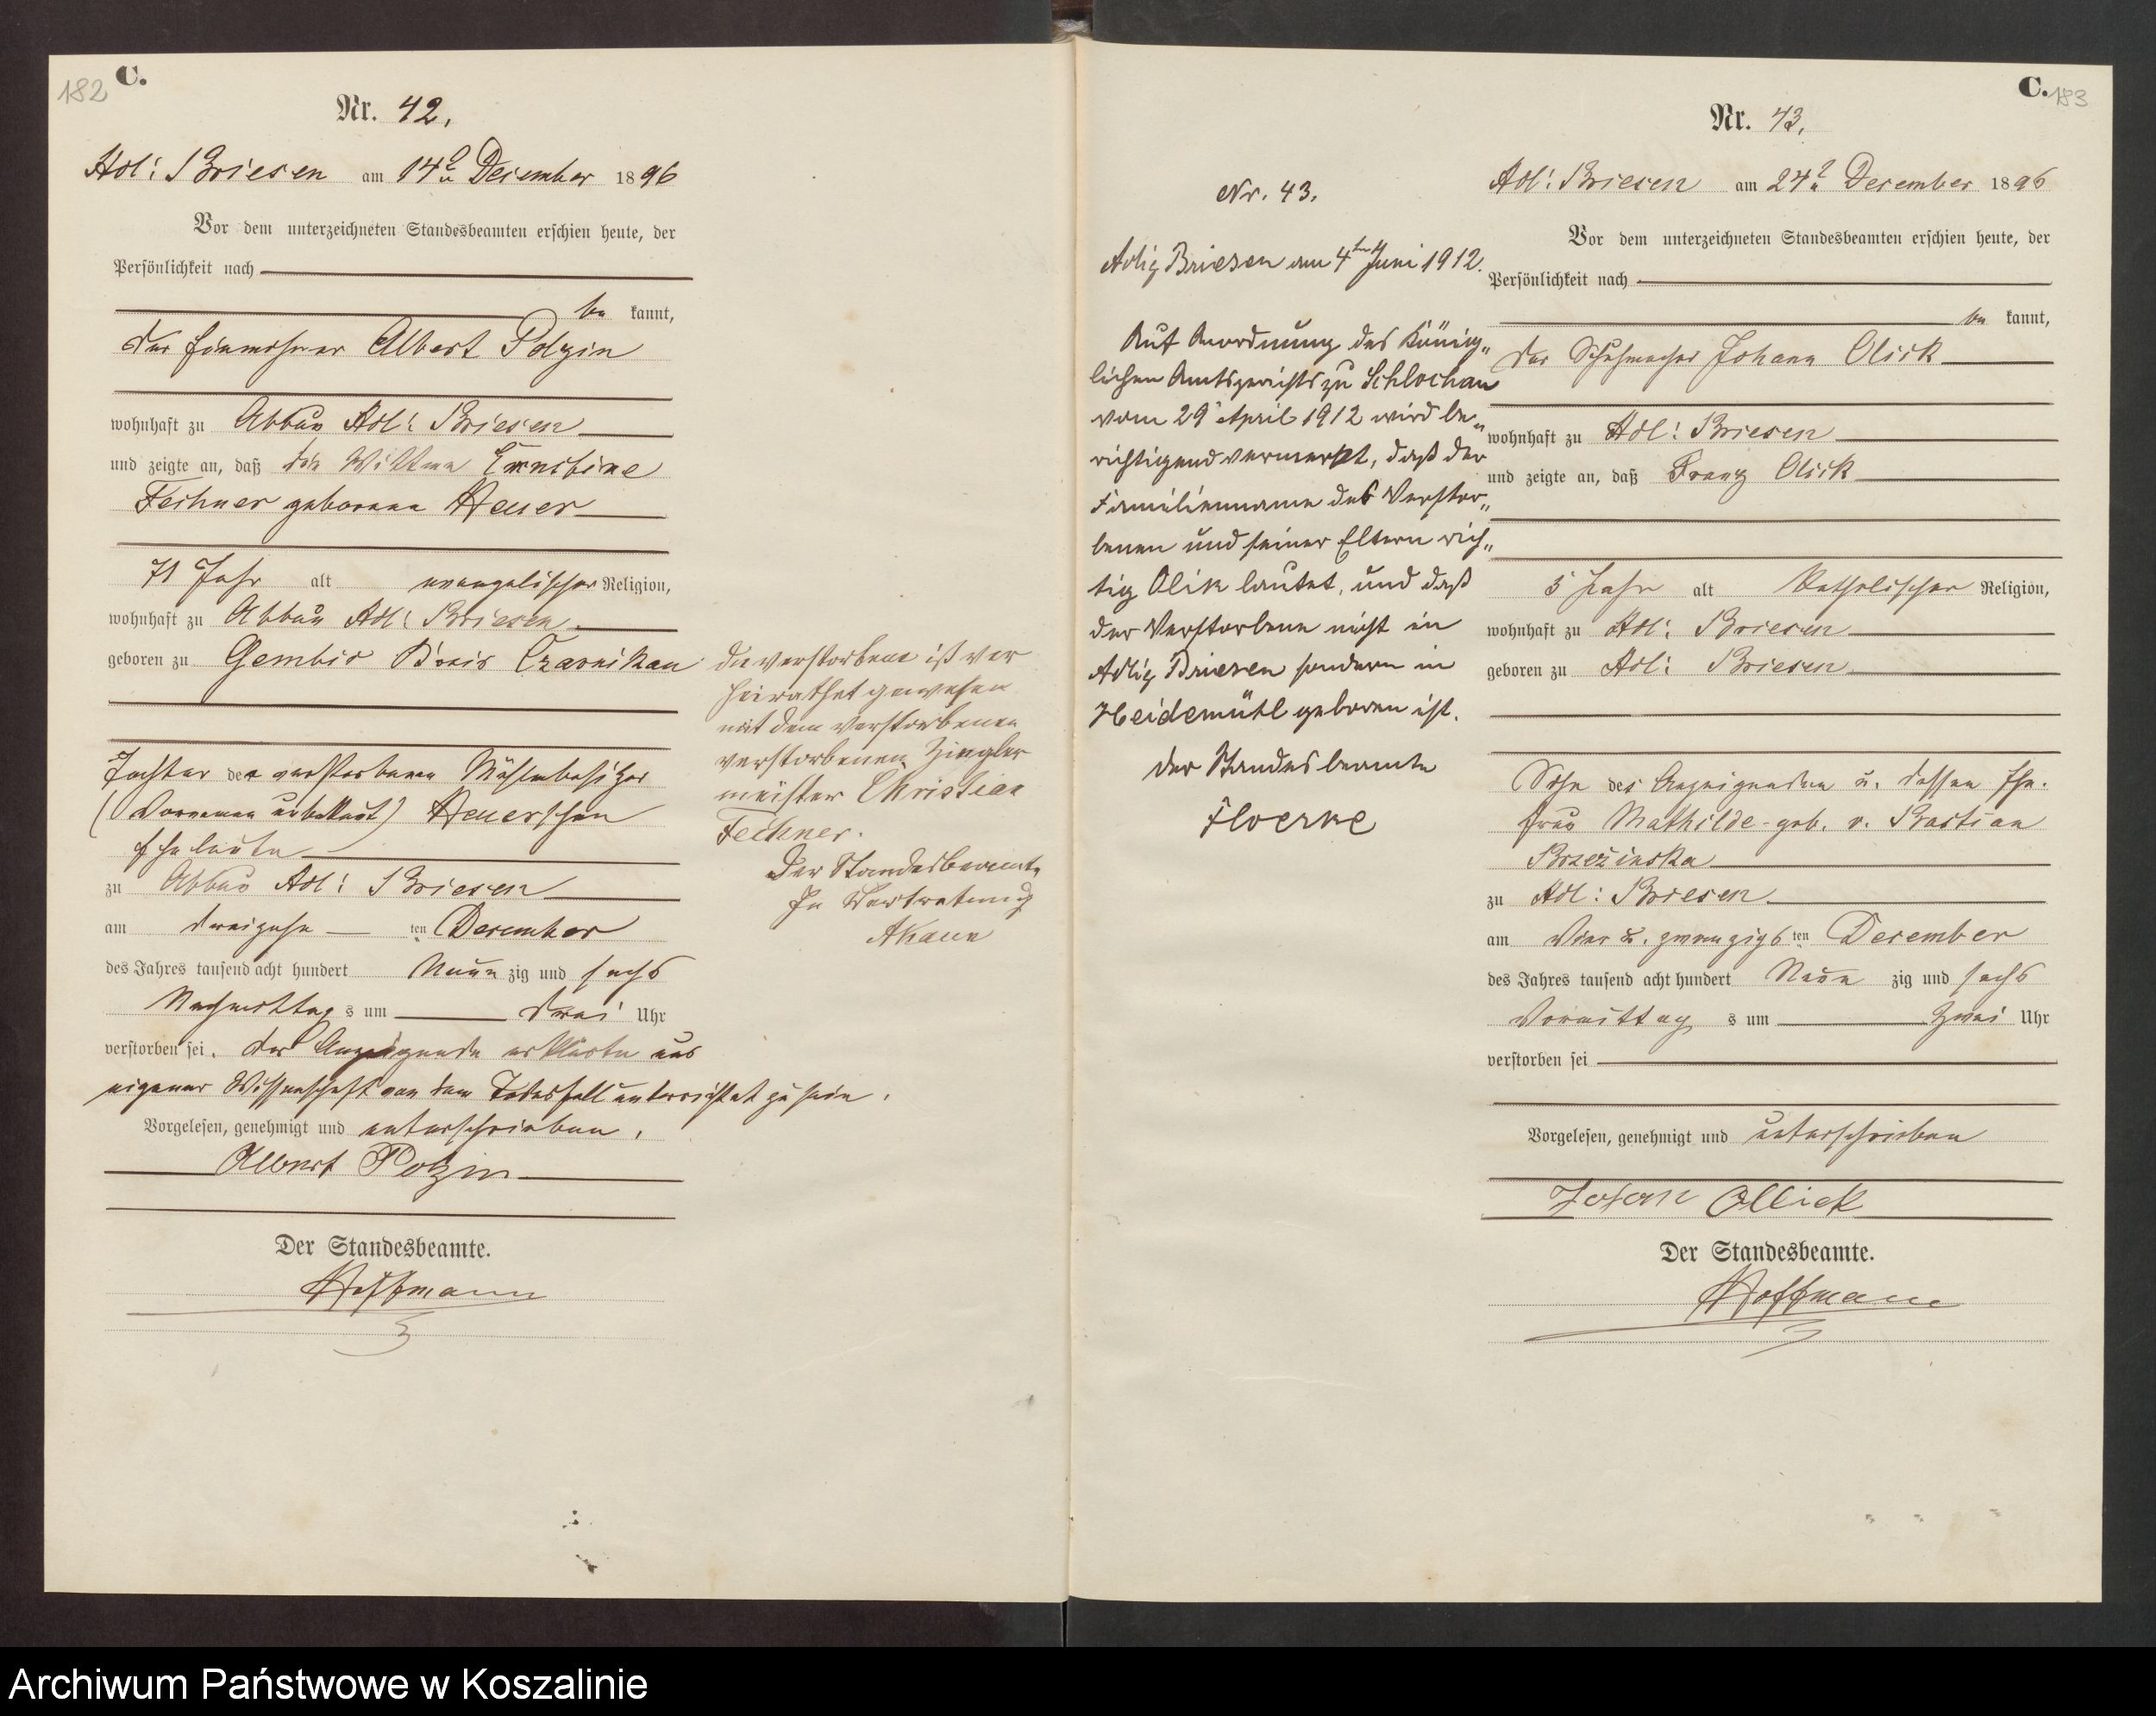 182
C.
Nr. 42.
Adl: Briesen am 14t. December 1896
Vor dem unterzeichneten Standesbeamten erschien heute, der
Persönlichkeit nach
be kannt,
der Einwohner Albert Polzin
wohnhaft zu Abbau Adl: Briesen
und zeigte an, daß die Wittwe Ernstine
Fechner geborene Heuer
71 Jahr alt evangelischer Religion,
wohnhaft zu Abbau Adl: Briesen
geboren zu Gembic Kreis Czarnikau
Tochter der verstorbenen Mühlenbesitzer
(Vornamen unbekannt) Heuerschen
Eheleute
zu Abbau Adl: Briesen
am dreizehn ten December
des Jahres tausend acht hundert Neun zig und sechs
Nachmittag s um drei Uhr
verstorben sei. Der Anzeigende erklärte aus
eigener Wissenschaft von dem Todesfall unterrichtet zu sein.
Vorgelesen, genehmigt und unterschrieben.
Albert Polzin
Der Standesbeamte.
Hoffmann
Die verstorbene ist ver
heirathet gewesen
mit dem verstorbenen
verstorbenen Ziegler
meister Christian
Fechner.
Der Standesbeamte
In Vertretung
Nr. 43.
Adlig Briesen am 4ten Juni 1912.
Auf Anordnung des König„
lichen Amtsgerichts zu Schlochau
vom 29 April 1912 wird be„
richtigend vermerkt, daß der
Familienname des Verstor„
benen und seiner Eltern rich„
tig Olik lautet, und daß
der Verstorbene nicht in
Adlig Briesen sondern in
Heidemühl geboren ist.
Der Standesbeamte
Floerke
C.
183
Nr. 43.
Adl: Briesen am 24t. December 1896
Vor dem unterzeichneten Standesbeamten erschien heute, der
Persönlichkeit nach
be kannt,
der Schuhmacher Johann Olick
wohnhaft zu Adl: Briesen
und zeigte an, daß Franz Olick
5 Jahr alt katholischer Religion,
wohnhaft zu Adl: Briesen
geboren zu Adl: Briesen
Sohn des Anzeigenden u. dessen Ehe-
frau Mathilde geb. v. Bastian
Brzezinska
zu Adl: Briesen
am Vier u. zwanzigs ten December
des Jahres tausend acht hundert Neun zig und sechs
Vormittag s um Zwei Uhr
verstorben sei
Vorgelesen, genehmigt und unterschrieben
Johann Ollick
Der Standesbeamte.
Hoffmann
Archiwum Państwowe w Koszalinie